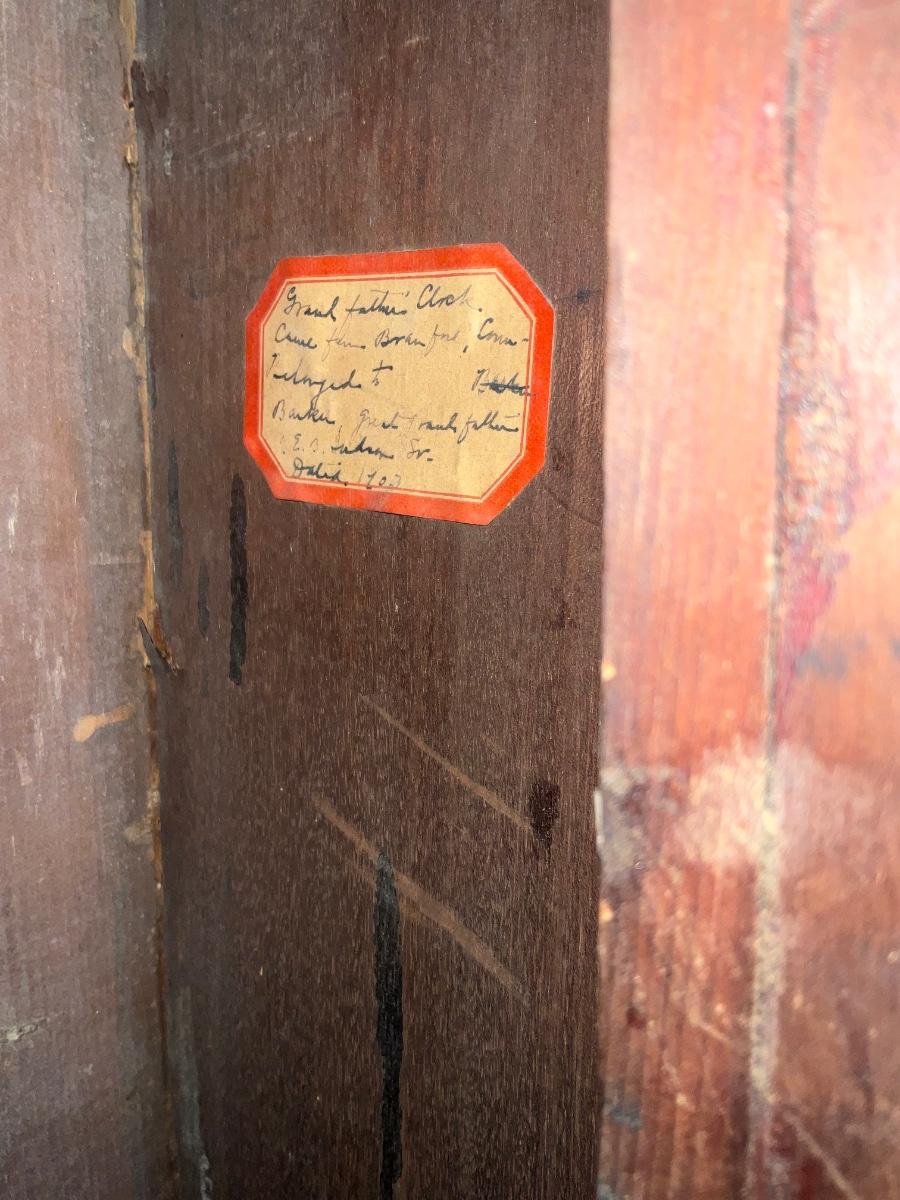 Grand father's Clock.
Came from Branford, Conn-
Belonged to
Barker, great grandfather
E. B.
Dated.